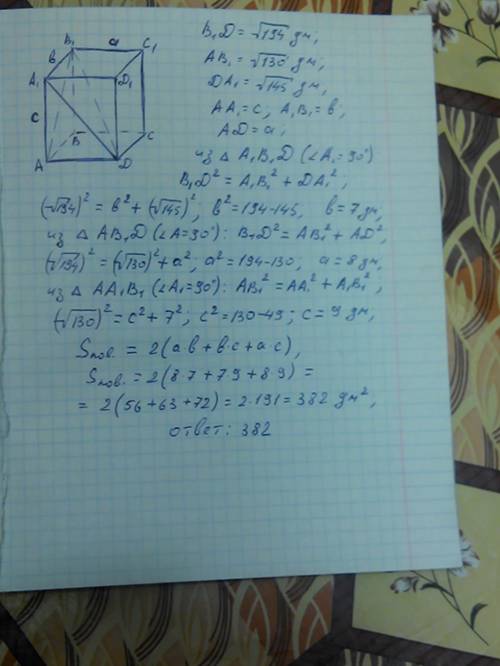 B₁ a C₁
в
A₁ D₁
c
B C
A D
B₁D = √194 дм;
AB₁ = √130 дм;
DA₁ = √145 дм;
AA₁ = c; A₁B₁ = в;
AD = a;
из Δ A₁B₁D (∠A₁ = 90°)
B₁D² = A₁B₁² + DA₁²;
(√194)² = в² + (√145)²; в² = 194-145, в = 7 дм,
из Δ AB₁D (∠A = 90°): B₁D² = AB₁² + AD²,
(√194)² = (√130)² + a², a² = 194-130, a = 8 дм,
из Δ AA₁B₁ (∠A₁ = 90°): AB₁² = AA₁² + A₁B₁²,
(√130)² = c² + 7²; c² = 130-49; c = 9 дм,
Sпов. = 2(a·в + в·c + a·c),
Sпов. = 2(8·7 + 7·9 + 8·9) =
= 2(56 + 63 + 72) = 2·191 = 382 дм²,
ответ: 382